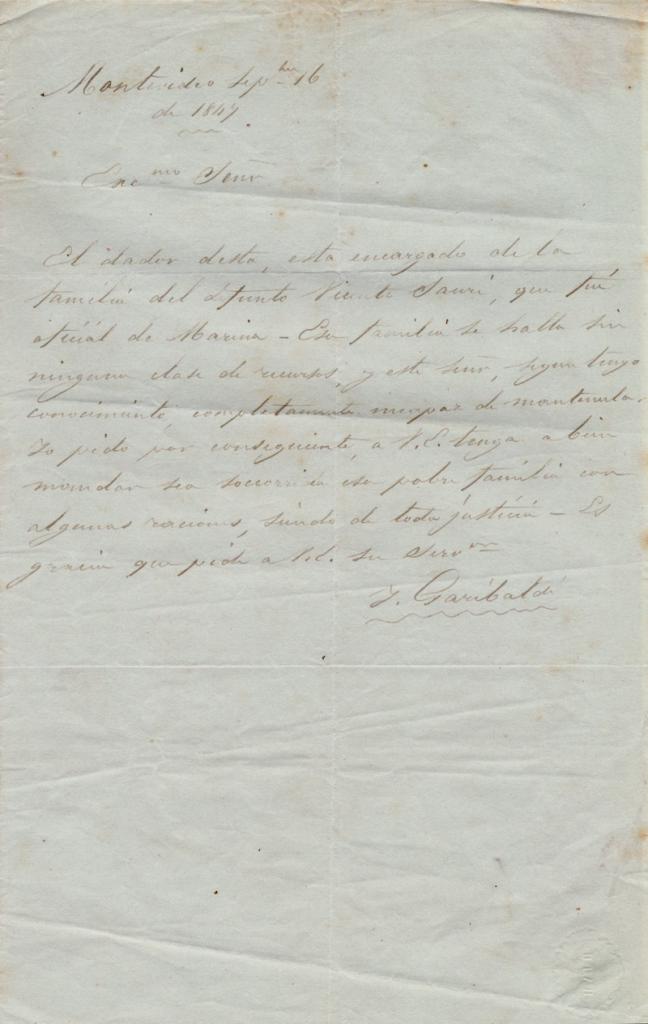 Montevideo Sep.bre 16
de 1847
Exc.mo Señr
El dador desta, esta encargado de la
familia del difunto Vicente Sauri, que fué
oficial de Marina – Esa familia se halla sin
ninguna clase de recursos, y este Señr, segun tengo
conocimiento, completamente incapaz de mantenerla.
Yo pido por consequiente, a V.E. tenga a bien
mandar sea socorrida esa pobre familia con
algunas raciones, siendo de toda justicia – Es
gracia que pide a V.E. su Serv.or
J. Garibaldi